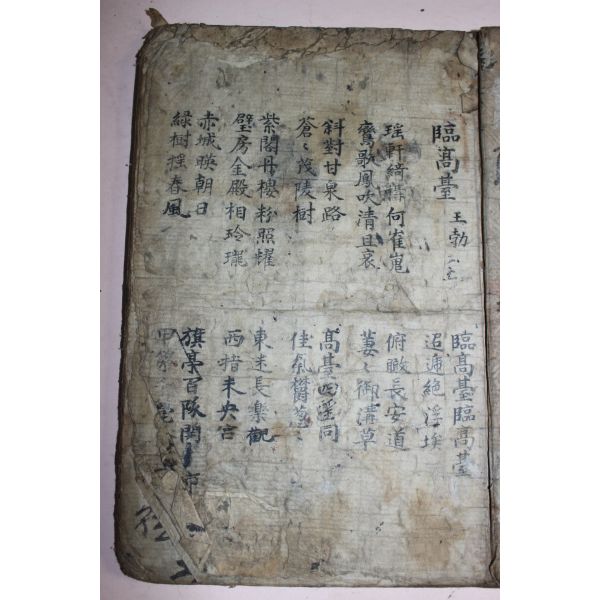 臨髙臺 王勃
臨髙臺臨髙臺
迢遞絕浮埃
瑶軒綺構何崔嵬
鸞歌鳳吹清且哀
俯瞰長安道
萋〻御溝草
斜對甘泉路
蒼〻茂陵樹
髙臺四望同
佳氣欝葱〻
紫閣丹樓粉照耀
璧房金殿相玲瓏
東迷長樂觀
西指未央宮
赤城暎朝日
緑樹搖春風
旗亭百隊開 市
甲第 甍